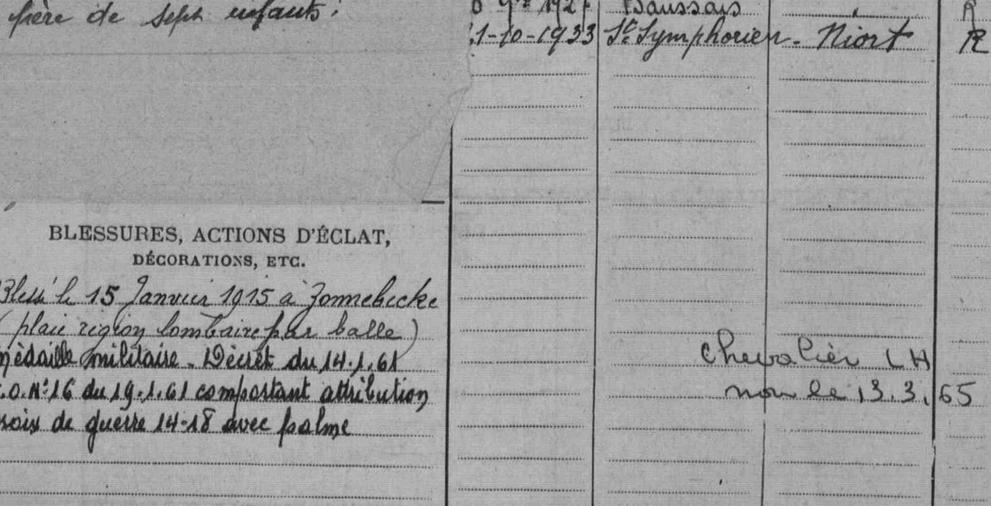 père de sept enfants.
1927 Saussais
1-10-1933 St Symphorien - Niort R
BLESSURES, ACTIONS D'ÉCLAT,
DÉCORATIONS, ETC.
Blessé le 15 Janvier 1915 à Zonnebecke
(plaie région lombaire par balle)
médaille militaire. Décret du 14.1.61
J.O. N° 16 du 19.1.61 comportant attribution
croix de guerre 14-18 avec palme
Chevalier LH
nom le 13.3.65